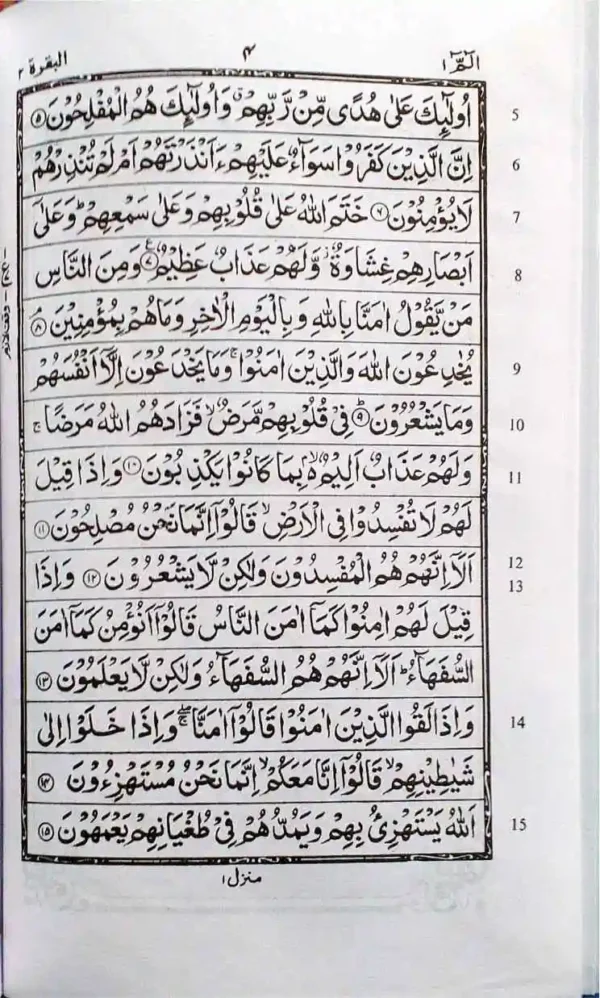 البقرة ٢ ۴ الٓمّٓ ١
اُولٰٓئِكَ عَلٰى هُدًى مِّنْ رَّبِّهِمْ ۗ وَاُولٰٓئِكَ هُمُ الْمُفْلِحُوْنَ ۝۵ 5
اِنَّ الَّذِيْنَ كَفَرُوْا سَوَآءٌ عَلَيْهِمْ ءَاَنْذَرْتَهُمْ اَمْ لَمْ تُنْذِرْهُمْ 6
لَا يُؤْمِنُوْنَ ۝۶ خَتَمَ اللّٰهُ عَلٰى قُلُوْبِهِمْ وَعَلٰى سَمْعِهِمْ ؕ وَعَلٰٓى 7
اَبْصَارِهِمْ غِشَاوَةٌ ؗ وَّلَهُمْ عَذَابٌ عَظِيْمٌ ۝۷ ع وَمِنَ النَّاسِ 8
مَنْ يَّقُوْلُ اٰمَنَّا بِاللّٰهِ وَبِالْيَوْمِ الْاٰخِرِ وَمَا هُمْ بِمُؤْمِنِيْنَ ۝۸ۘ
يُخٰدِعُوْنَ اللّٰهَ وَالَّذِيْنَ اٰمَنُوْا ۚ وَمَا يَخْدَعُوْنَ اِلَّاۤ اَنْفُسَهُمْ 9
وَمَا يَشْعُرُوْنَ ۝۹ؕ فِيْ قُلُوْبِهِمْ مَّرَضٌ ۙ فَزَادَهُمُ اللّٰهُ مَرَضًا ۚ 10
وَلَهُمْ عَذَابٌ اَلِيْمٌۢ ۙ بِمَا كَانُوْا يَكْذِبُوْنَ ۝۱۰ وَاِذَا قِيْلَ 11
لَهُمْ لَا تُفْسِدُوْا فِي الْاَرْضِ ۙ قَالُوْۤا اِنَّمَا نَحْنُ مُصْلِحُوْنَ ۝۱۱
اَلَاۤ اِنَّهُمْ هُمُ الْمُفْسِدُوْنَ وَلٰكِنْ لَّا يَشْعُرُوْنَ ۝۱۲ وَاِذَا 12 13
قِيْلَ لَهُمْ اٰمِنُوْا كَمَاۤ اٰمَنَ النَّاسُ قَالُوْۤا اَنُؤْمِنُ كَمَاۤ اٰمَنَ
السُّفَهَآءُ ؕ اَلَاۤ اِنَّهُمْ هُمُ السُّفَهَآءُ وَلٰكِنْ لَّا يَعْلَمُوْنَ ۝۱۳
وَاِذَا لَقُوا الَّذِيْنَ اٰمَنُوْا قَالُوْۤا اٰمَنَّا ۖۚ وَاِذَا خَلَوْا اِلٰى 14
شَيٰطِيْنِهِمْ ۙ قَالُوْۤا اِنَّا مَعَكُمْ ۙ اِنَّمَا نَحْنُ مُسْتَهْزِءُوْنَ ۝۱۴
اَللّٰهُ يَسْتَهْزِئُ بِهِمْ وَيَمُدُّهُمْ فِيْ طُغْيَانِهِمْ يَعْمَهُوْنَ ۝۱۵ 15
منزل ١